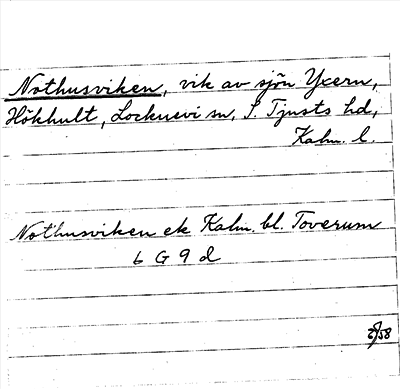 Nothusviken, vik av sjön Yxern,
Hökhult, Locknevi sn, S. Tjusts hd,
Kalm. l.
Nothusviken ek Kalm. bl. Toverum
6 G 9 d